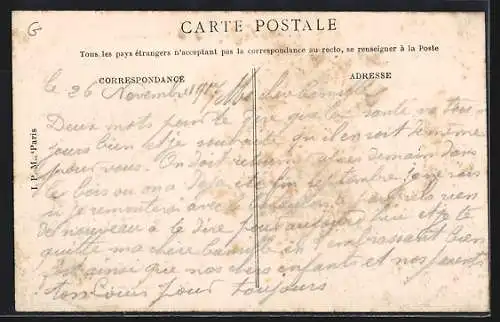 G
CARTE POSTALE
Tous les pays étrangers n'acceptant pas la correspondance au recto, se renseigner à la Poste
CORRESPONDANCE
ADRESSE
I. P. M. Paris
le 26 Novembre 1917 Ma chère Camille
Deux mots pour te dire que la santé va tou
jours bien et je souhaite qu'il en soit de même
pour vous. On doit demain dans
le bois ou on a déjà été fin septembre. je ne sais
si je remonterai avec le rien
de nouveau à te dire pour aujourd hui et je te
quitte ma chère Camille en t'embrassant bien
fort ainsi que nos chers enfants et nos parents
ton Louis pour toujours